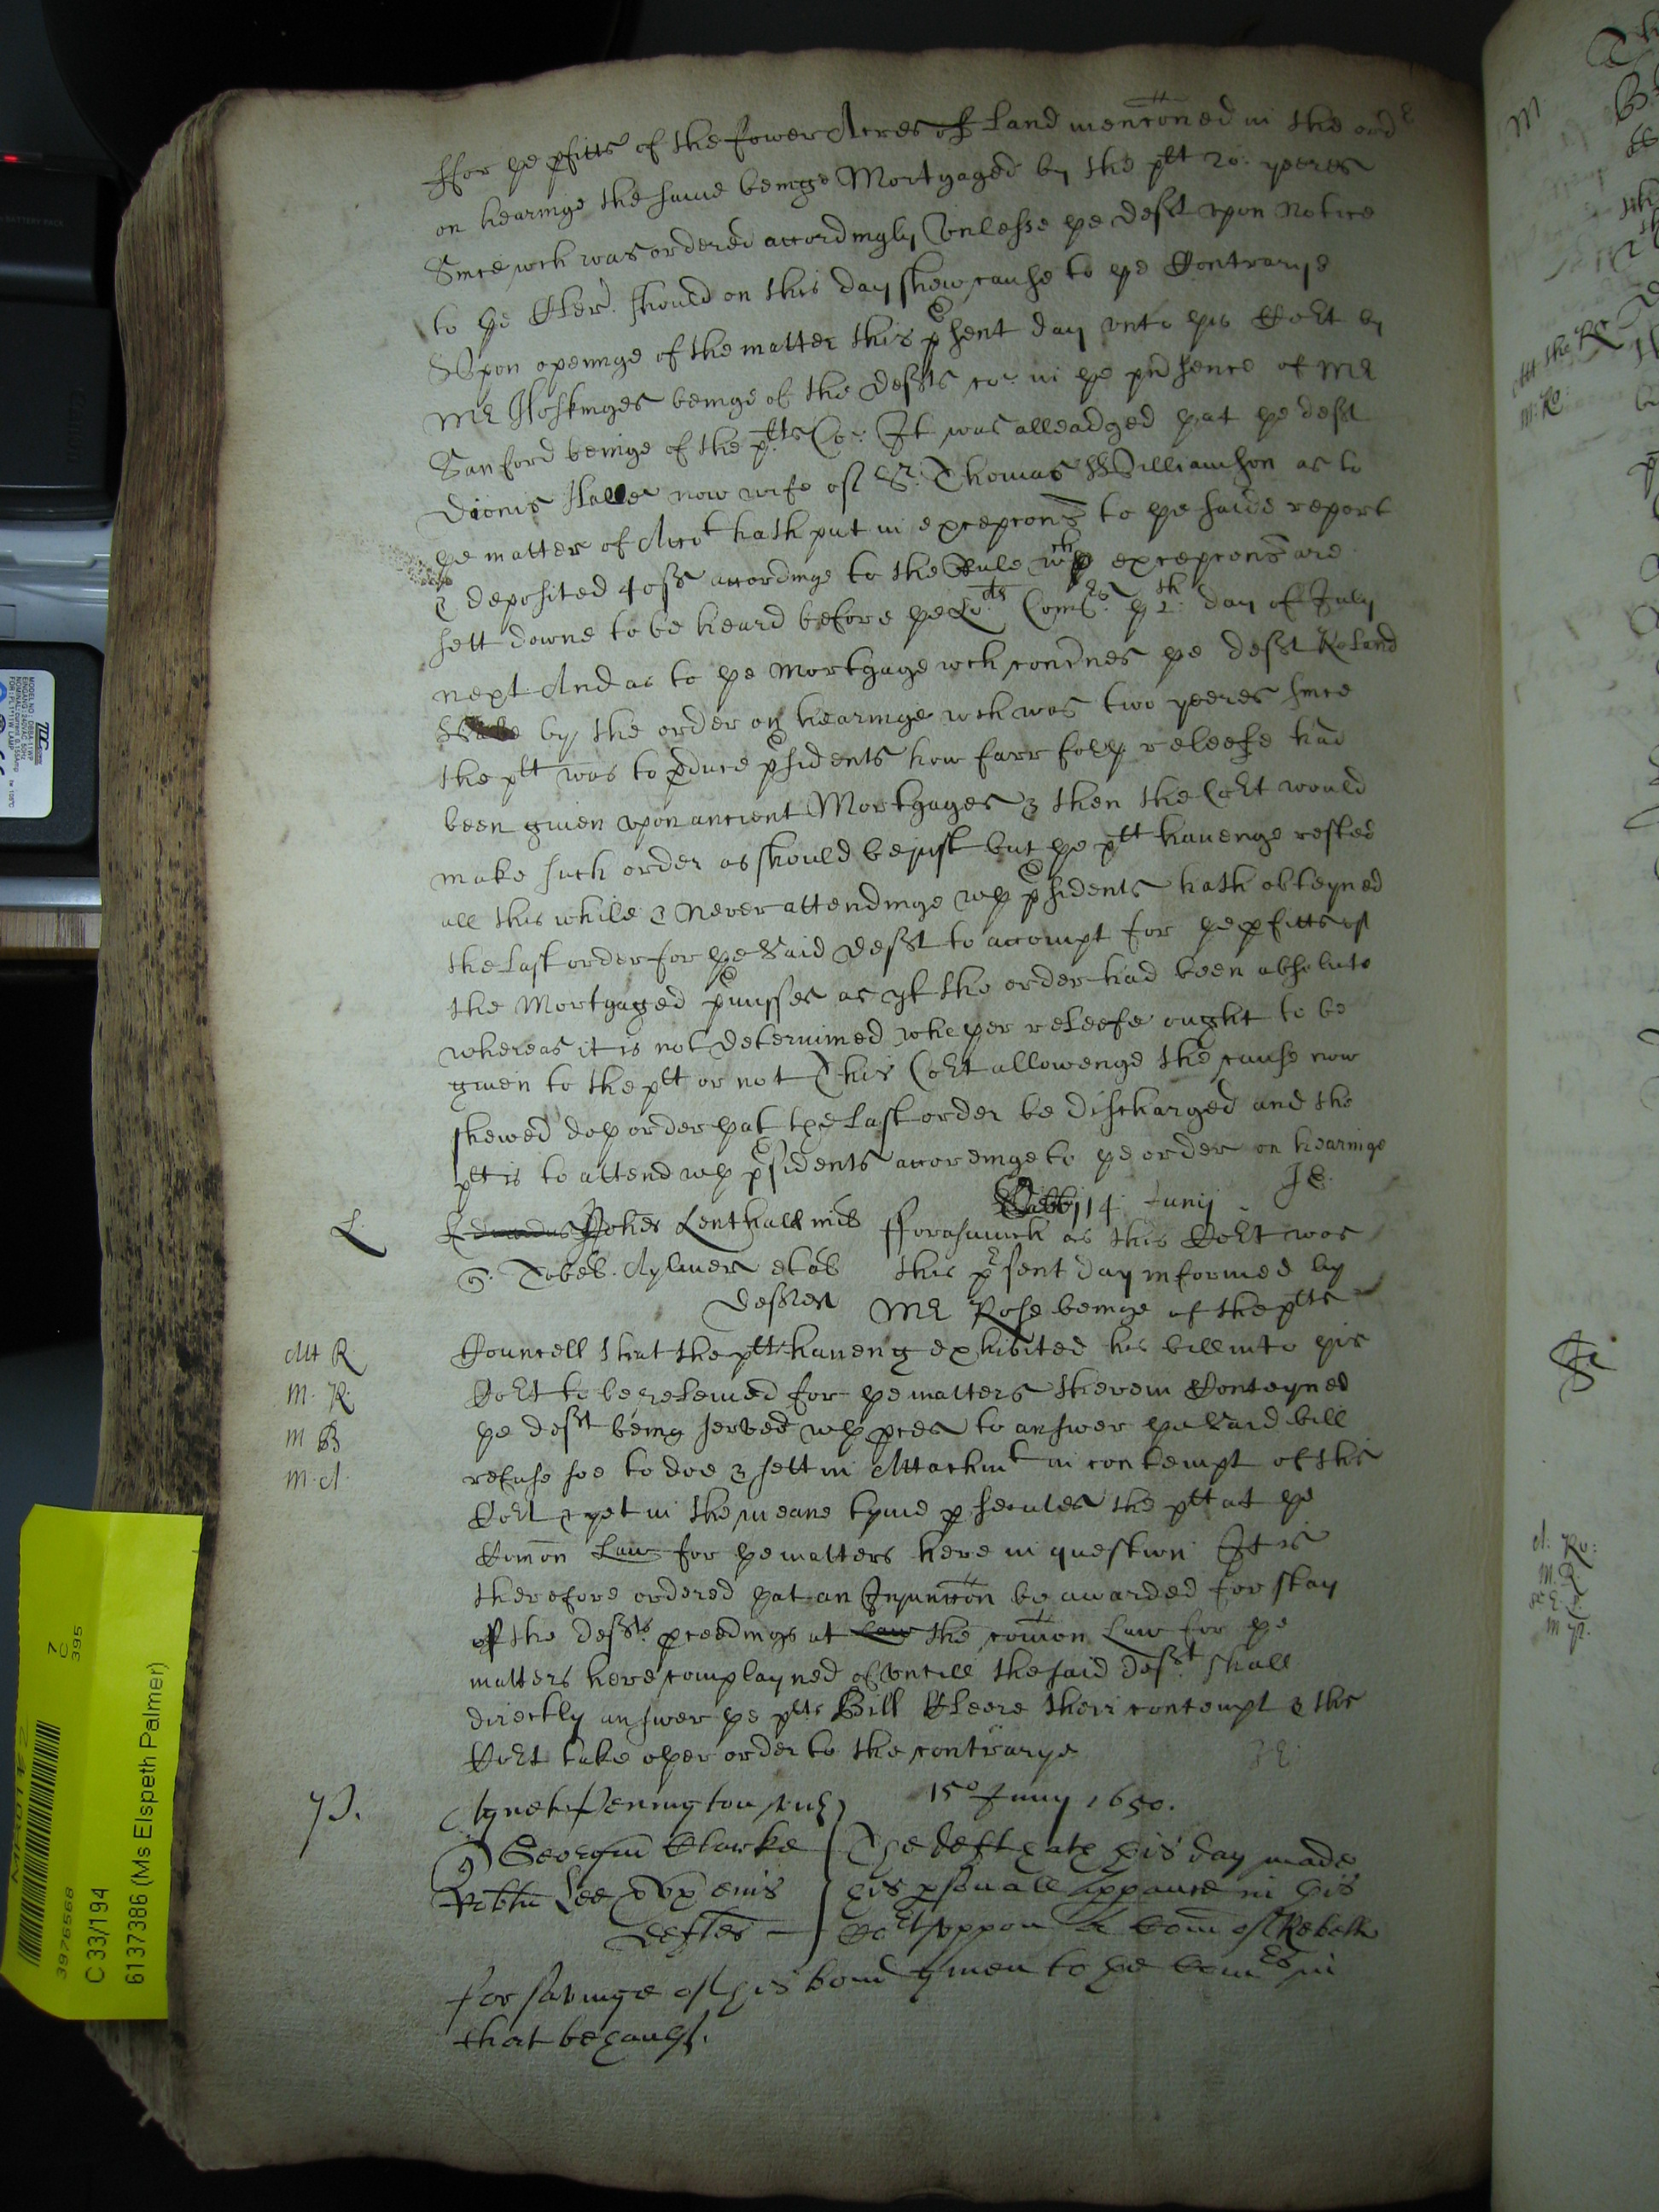 ffor ye pfitts of the fower Acres of Land menconed in the ordr
on hearinge the same beinge Mortgaged by the plt 20. yeeres
Since wch was ordered accordingly Vnlesse ye deft vpon Notice
to ye Cler. should on this day shew cause to ye Contrarye
Vpon openinge of the matter this psent day vnto ys Cort by
Mr Hoskinges beinge of the defts co. in ye prsence of Mr
Sanford beinge of the plts Co. It was alleadged yat ye deft
Dionis now wife of Sr. Thomas Williamson as to
ye matter of Accot hath put in excepcons to ye saide report
& deposited 40ss accordinge to the Rule wch excepcons are
sett downe to be heard before ye Lo: Comrs. ye day of July
next And as to ye Mortgage wch concrnes ye deft Roland
by the order on hearinge wch was two yeeres since
the plt was to pduce psidents how farr forth releefe had
been given vpon ancient Mortgages & then the Cort would
make such order as should be just but ye plt haueinge rested
all this while & Never attendinge wth psidents hath obteyned
the last order for ye Said deft to accompt for ye pfitts of
the Mortgaged pmisses as yf the order had been absolute
whereas it is not determined wheyer releefe ought to be
given to the plt or not This Cort allowenge the cause now
shewed doth order yat the last order be discharged and the
plt is to attend wth psidents accordinge to ye order on hearinge
14 Junij J E.
L Johes Lenthall mil fforasmuch as this Cort was
Tobeb. Aylmer et this psent day informed by
Deftes Mr Rose beinge of the plts
Att R Councell that the plt haueng exhibited his bill into yis
M. R. Cort to be releived for ye matters therein Conteyned
M B ye deft being served wth pces to answer ye Said bill
M. A. refuse soe to doe & sett in Attachmt in contempt of this
Cort & yet in the meane tyme psecutes the plt at ye
Comon Law for ye matters here in question It is
therefore ordered yat an Iniuncon be awarded for stay
of the defts pceedings at law the comon Law for ye
matters here complayned of vntill the said deft shall
directly answer ye plts Bill Cleere their contempt & this
Cort take oyer order to the contrarye J E.
P. Agnet Penington 15o Juny 1650.
Georgiu Clarke The deft hath yis day made
Robtu Lee & vx eius his psonall appance in yis
deftes Cort vppon a Com of Rebell
for savinge of his bond given to ye Comrs in
that behaulf.
MODEL NO: DBA-11WP
C 33/194
6137386 (Ms Elspeth Palmer)
3976568
7
C
395